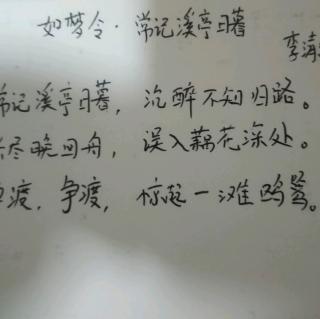 如梦令·常记溪亭日暮
李清
常记溪亭日暮，沉醉不知归路。
尽晚回舟，误入藕花深处。
渡，争渡，惊起一滩鸥鹭。